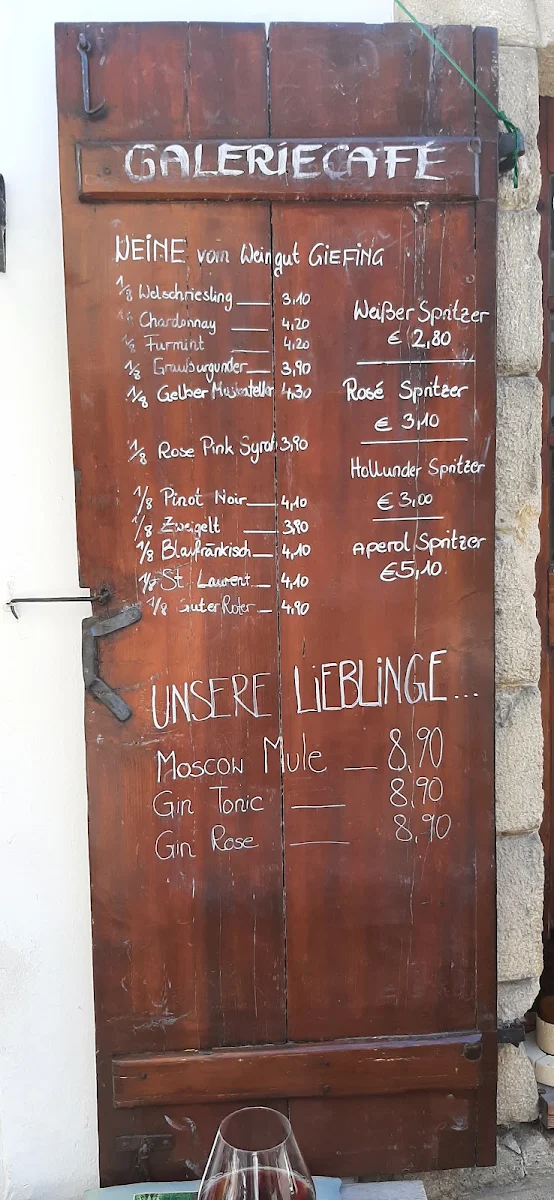 GALERIECAFE
WEINE vom Weingut GIEFING
1/8 Welschriesling 3,10
1/8 Chardonnay 4,20
1/8 Furmint 4,20
1/8 Grauburgunder 3,90
1/8 Gelber Muskateller 4,30
1/8 Rose Pink Syrah 3,90
1/8 Pinot Noir 4,10
1/8 Zweigelt 3,90
1/8 Blaufränkisch 4,10
1/8 St. Laurent 4,10
1/8 Guter Roter 4,90
Weißer Spritzer
€ 2,80
Rosé Spritzer
€ 3,10
Hollunder Spritzer
€ 3,00
Aperol Spritzer
€5,10
UNSERE LIEBLINGE...
Moscow Mule 8,90
Gin Tonic 8,90
Gin Rose 8,90